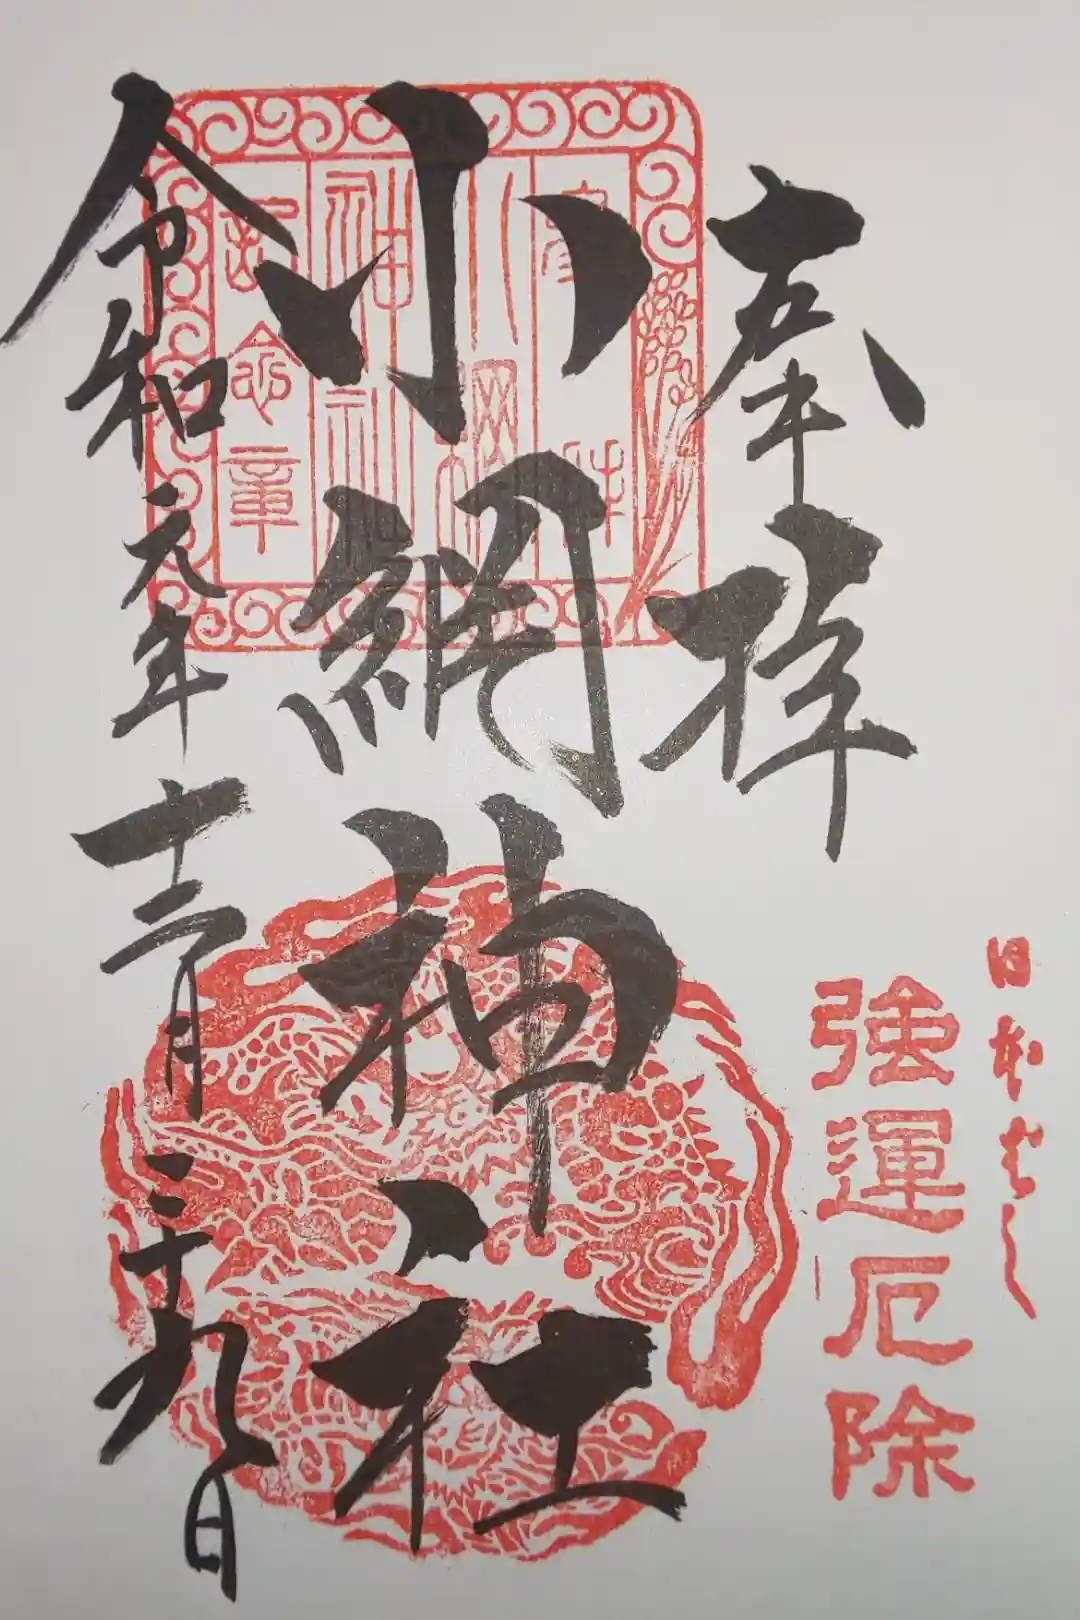 日本ばし
強運厄除
奉拝
小網神社
令和元年十二月二十九日
小網
神社
記念章